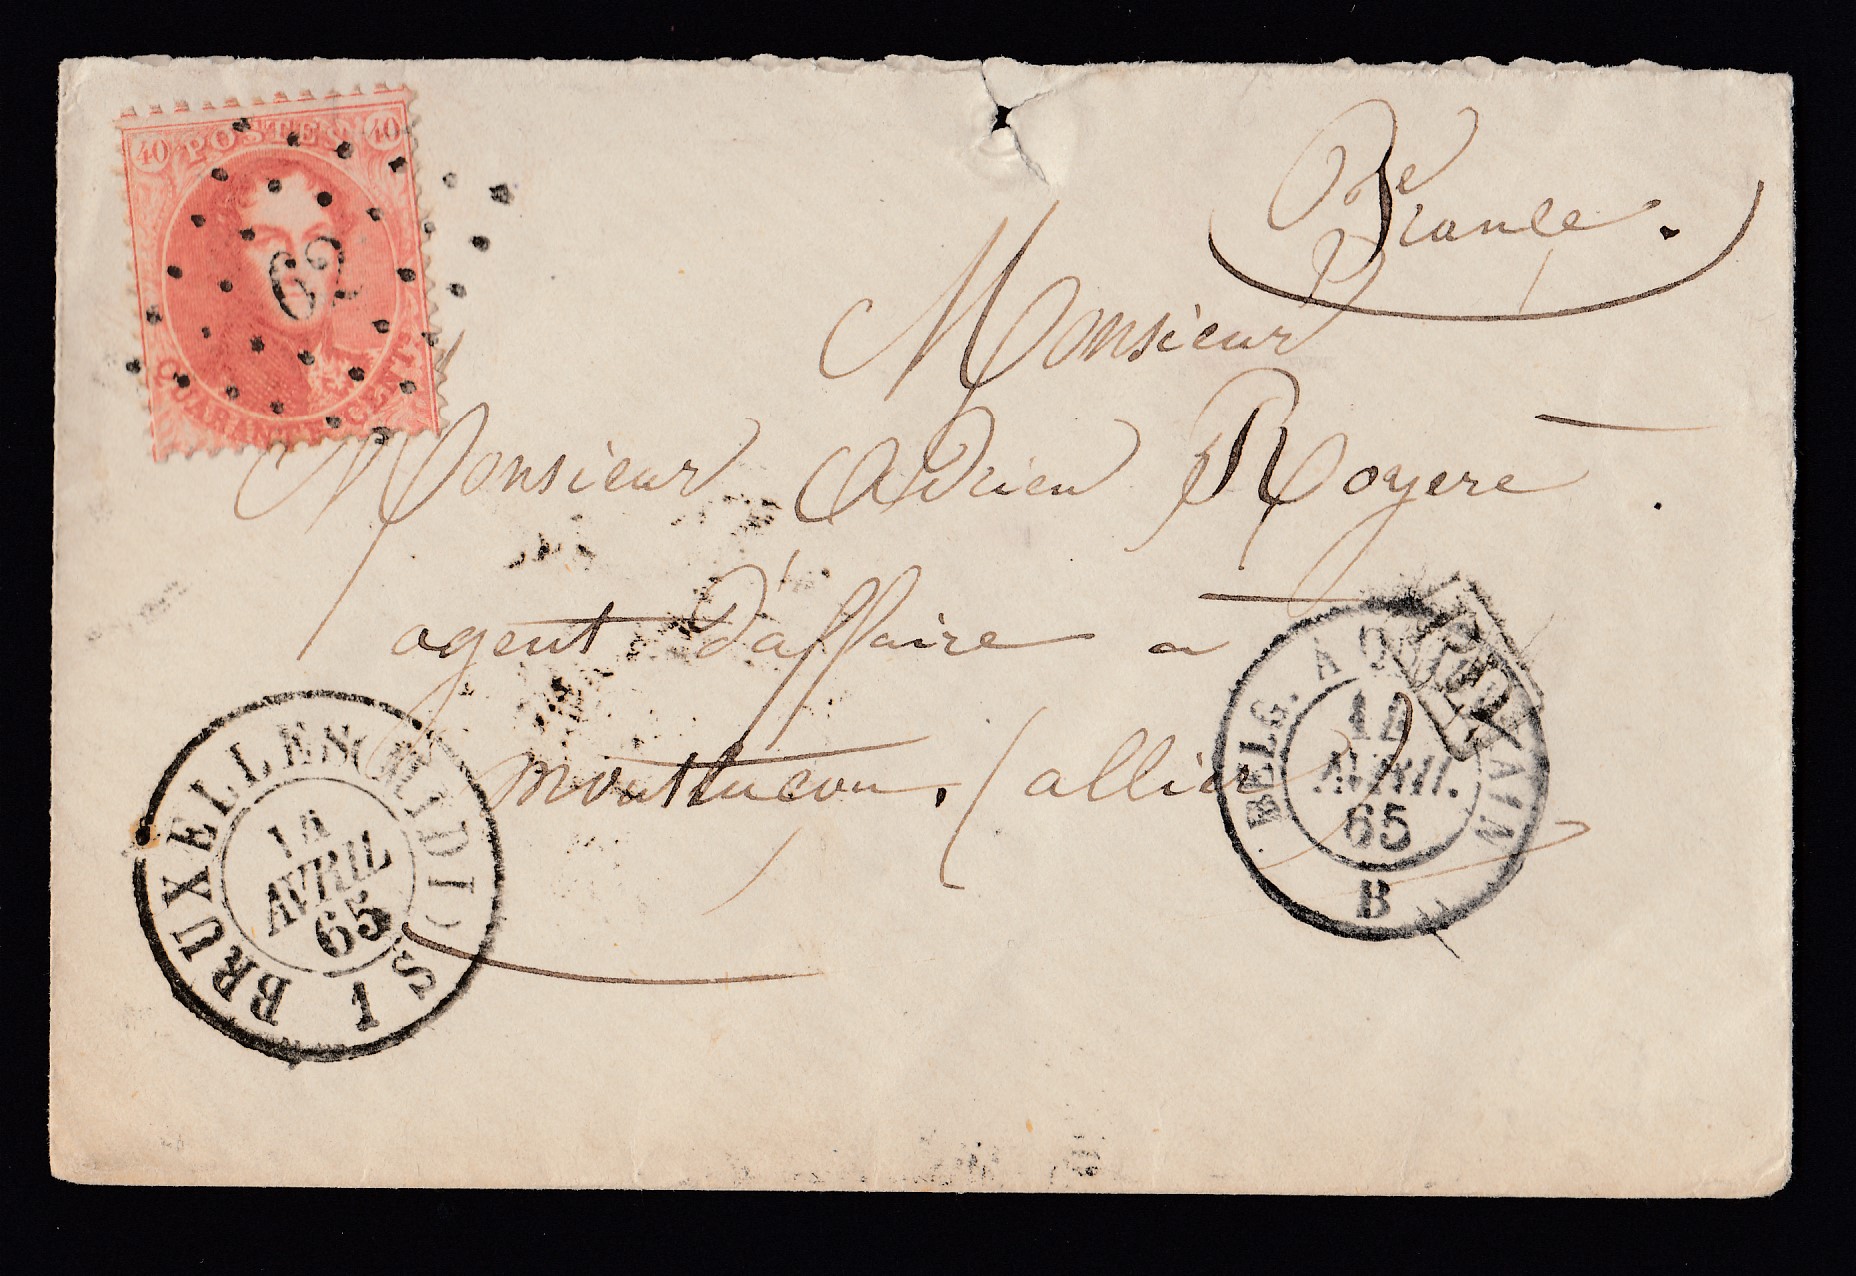 40 POSTES 40
62
QUARANTE CENTS
(France.
Monsieur
Monsieur Adrien Royere
agent d'affaire a
montlucon. (allier)
BRUXELLES (MIDI)
14
AVRIL
65
1 S
BELG. A QUIÉVRAIN
14
AVRIL
65
B
PD